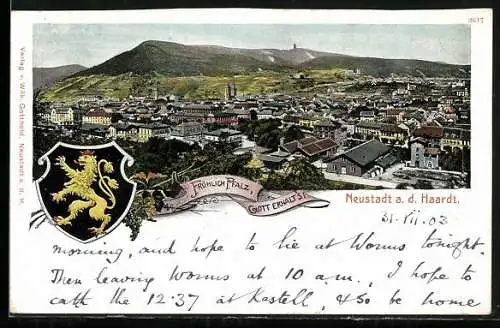 2037
Verlag v. Wilh. Gottwald, Neustadt a. d. H.
FRÖHLICH PFALZ,
GOTT ERHALT'S!
Neustadt a. d. Haardt.
31-VII-03
morning, and hope to lie at Worms tonight.
Then leaving Worms at 10 a.m., I hope to
catch the 12.37 at Kastell, & so be home